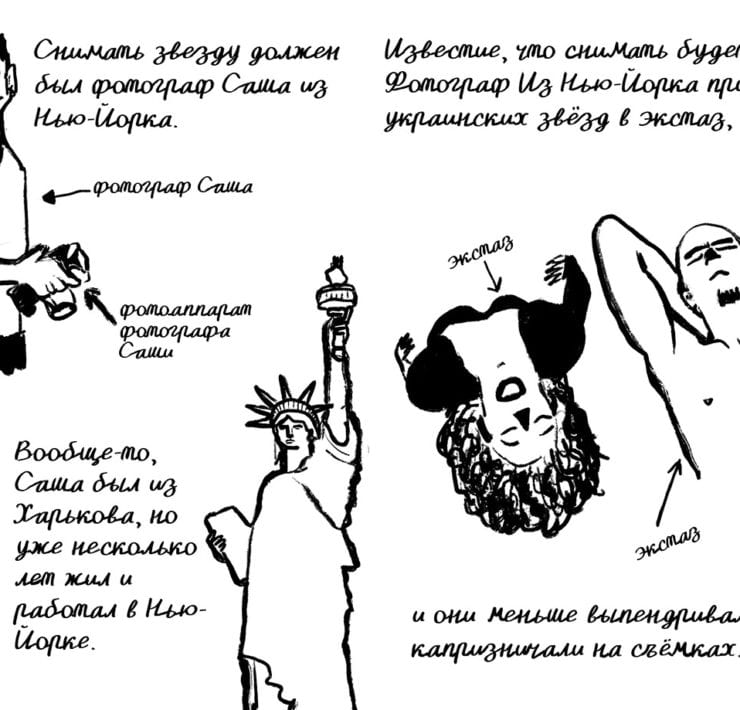 Снимать звезду должен
был фотограф Саша из
Нью-Йорка.
фотограф Саша
фотоаппарат
фотографа
Саши
Вообще-то,
Саша был из
Харькова, но
уже несколько
лет жил и
работал в Нью-
Йорке.
Известие, что снимать буде
Фотограф Из Нью-Йорка пр
украинских звёзд в экстаз,
экстаз
экстаз
и они меньше выпендрива
капризничали на съёмках.